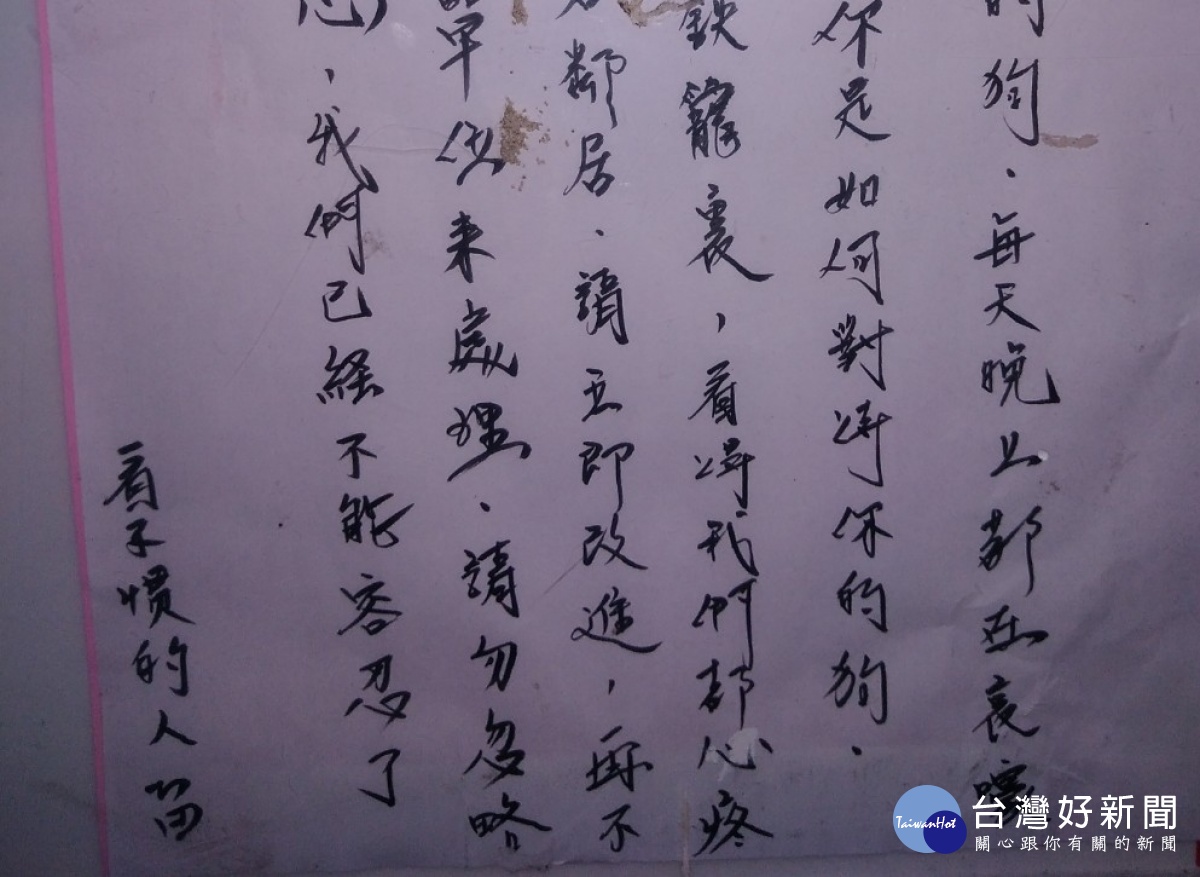 的狗．每天晚上都在哀嚎
你是如何對待你的狗．
鉄籠裏，看得我們都心疼
鄰居．請立即改進，再不
單位来處理．請勿忽略
心)，我們已経不能容忍了
看不慣的人留
TaiwanHot
台灣好新聞
關心跟你有關的新聞